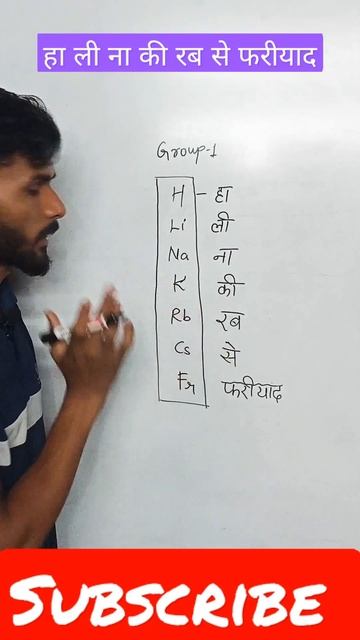 हा ली ना की रब से फरीयाद
Group-1
H - हा
Li ली
Na ना
K की
Rb रब
Cs से
Fr फरीयाद
SUBSCRIBE